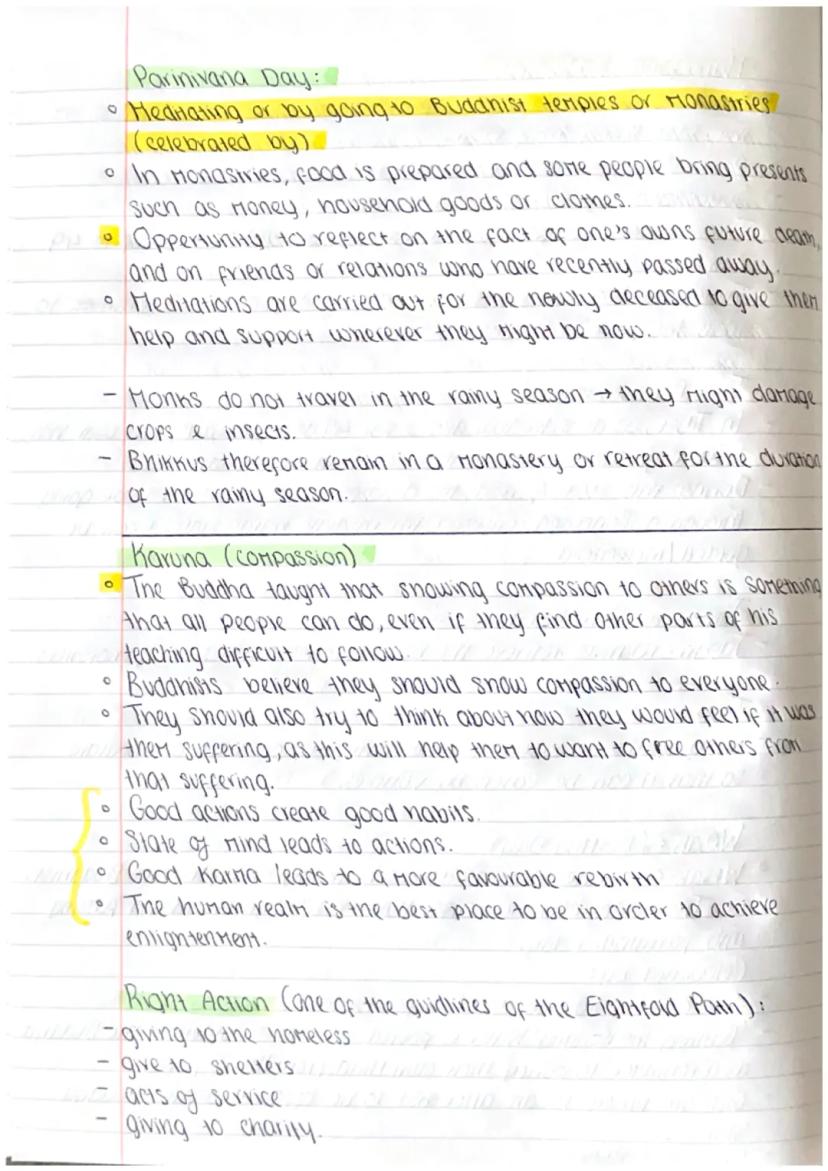 Parinivana Day:
◦ Meditating or by going to Buddhist temples or monastries
(celebrated by)
◦ In monastries, food is prepared and some people bring presents
such as money, household goods or clothes.
◦ Oppertunity to reflect on the fact of one's owns future death,
and on friends or relations who have recently passed away.
◦ Meditations are carried out for the newly deceased to give them
help and support wherever they might be now.
- Monks do not travel in the rainy season → they might damage
crops & insects.
- Bhikkus therefore remain in a monastery or retreat for the duration
of the rainy season.
Karuna (compassion)
◦ The Buddha taught that showing compassion to others is something
that all people can do, even if they find other parts of his
teaching difficult to follow.
◦ Buddhists believe they should show compassion to everyone.
◦ They should also try to think about how they would feel if it was
them suffering, as this will help them to want to free others from
that suffering.
◦ Good actions create good habits.
◦ State of mind leads to actions.
◦ Good Karma leads to a more favourable rebirth
◦ The human realm is the best place to be in order to achieve
enlightenment.
Right Action (one of the guidlines of the Eightfold Path):
- giving to the homeless
- give to shelters
- acts of service
- giving to charity.